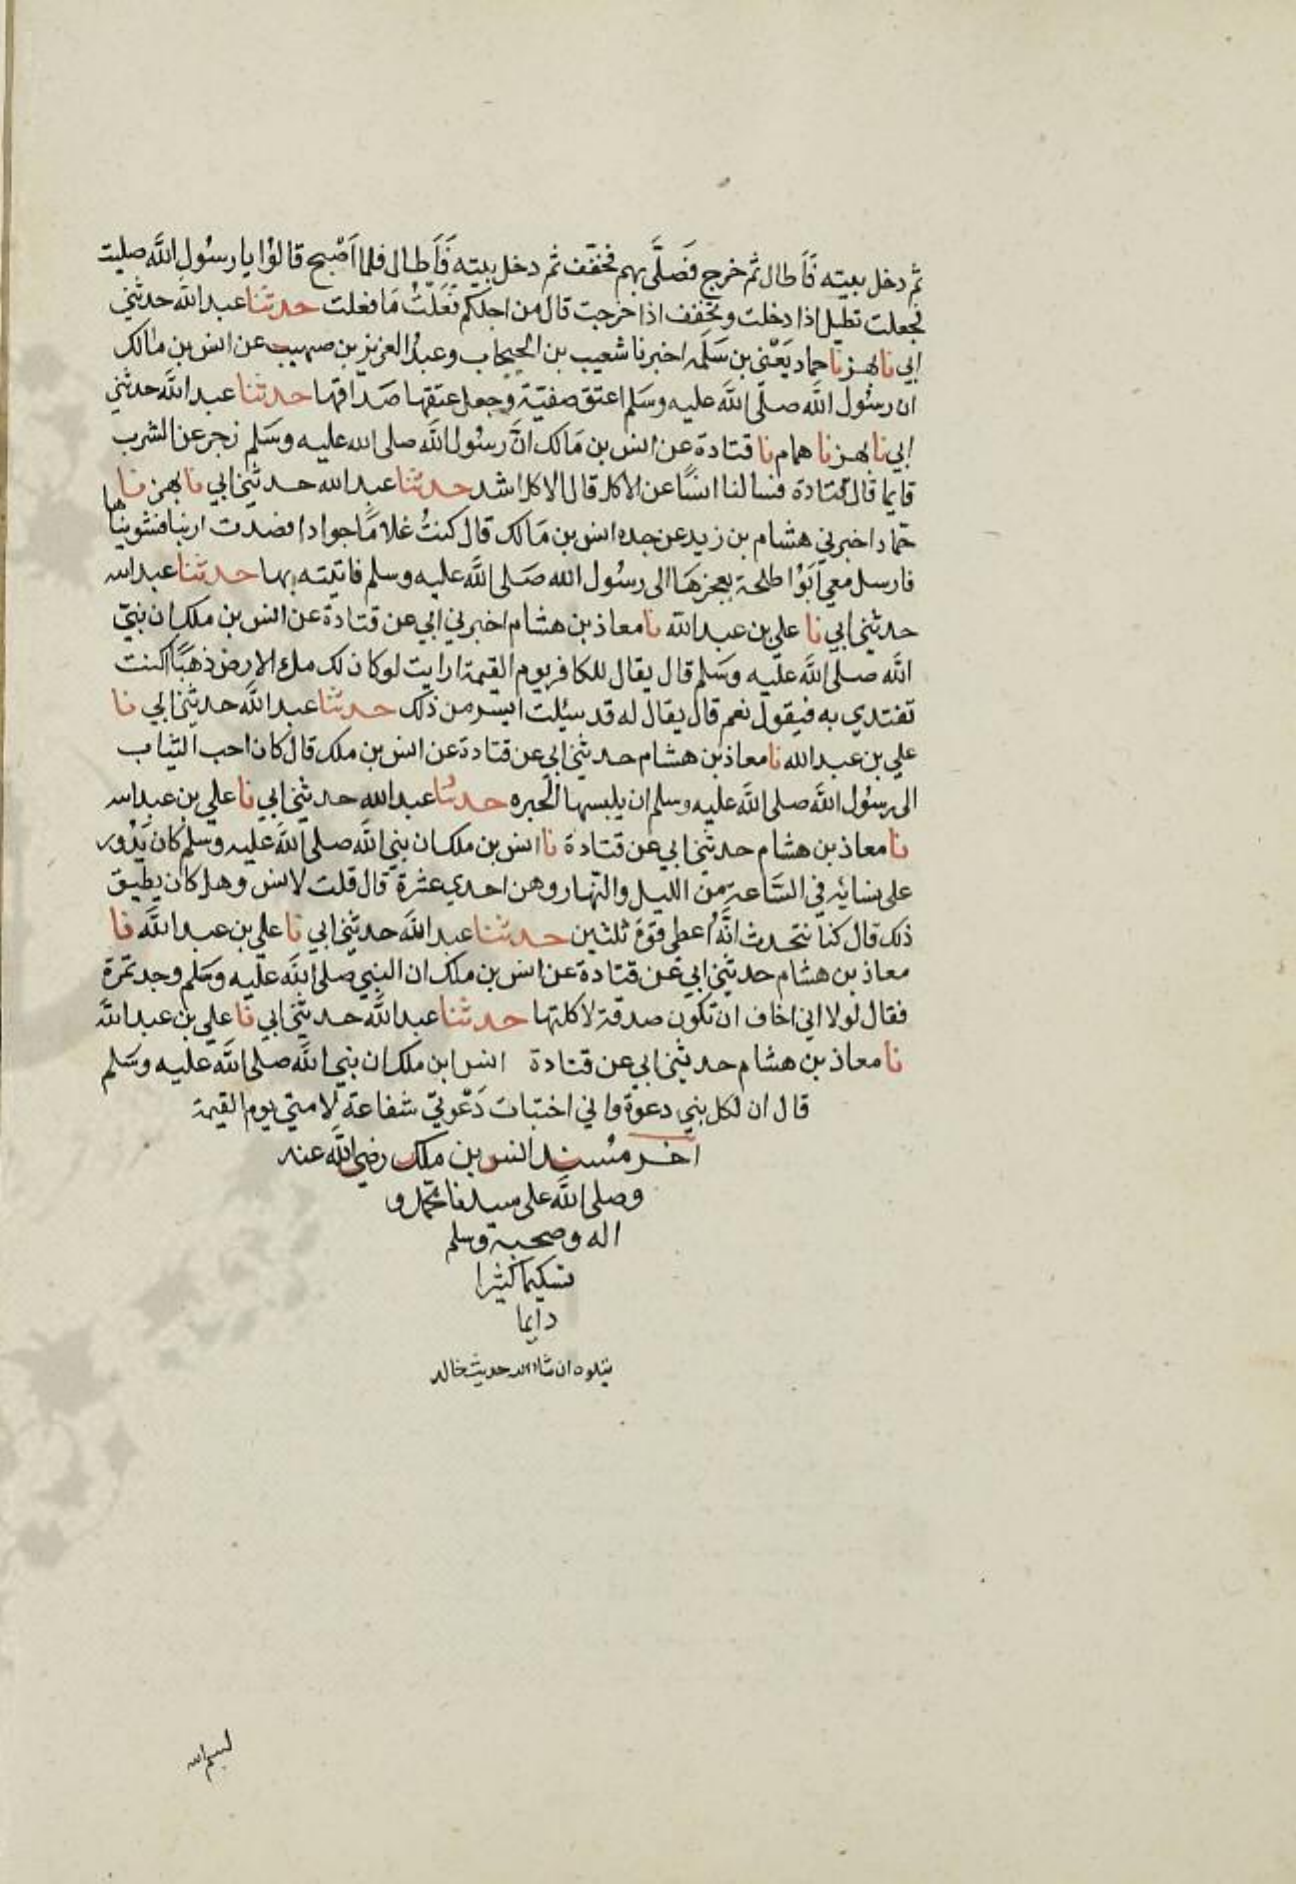 ثم دخل بيته فَأَطال ثم خرج فَصَلَّى بهم فخفف ثم دخل بيته فَأَطال فلما اَصْبح قالوُا يا رسُول اللَّه صليت
فجعلت تطيل اذا دخلت وتخفف اذا خرجت قال من اجلكم فَعَلْتُ مَا فعلت حدثنا عبد اللَّه حدثني
ابي نا بهز نا حماد يَعْنى بن سَلَمه اخبرنا شعيب بن الحبحاب وعبدُ العزيز بن صهيب عن انس بن مالك
ان رسُول اللَّه صلّى اللَّه عليه وسَلم اعتق صفيّة وجعل عتقها صَداقها حدثنا عبد اللَّه حدثني
ابي نا بهز نا همام نا قتادة عن انس بن مَالك انَّ رسُول اللَّه صلى الله عليه وسَلم زجر عن الشرب
قايما قال قتادة فسالنا انسًا عن الاكل قال الاكل اشد حدثنا عبد الله حدثني ابي نا بهز نا
حمّاد اخبرني هشام بن زيد عن جده انس بن مَالك قال كنتُ غلامًا جوادا فصدت ارنبا فشويناها
فارسل معي اَبوُا طلحة بعجزهَا الى رسُول الله صَلى اللَّه عليه وسلم فاتيته بها حدثنا عبد الله
حدثني ابي نا علي بن عبد اللَّه نا معاذ بن هشام اخبرني ابي عن قتادة عن انس بن ملك ان نبيّ
اللَّه صلى اللَّه عليه وسَلم قال يقال للكافر يوم القيمة ارايت لو كان لك ملء الارض ذهبًا اكنت
تفتدي به فيقول نعم قال يقال له قد سيُلت ايسر من ذلك حدثنا عبد اللَّه حدثني ابي نا
علي بن عبد الله نا معاذ بن هشام حدثني ابي عن قتادة عن انس بن ملك قال كان احب الثياب
الى رسُول اللَّه صلى اللَّه عليه وسلم ان يلبسها الحبره حدثنا عبد الله حدثني ابي نا علي بن عبد الله
نا معاذ بن هشام حدثني ابي عن قتادة نا انس بن ملك ان نبي اللَّه صلى اللَّه عليه وسلم كان يَدُور
على نسائِه في السَّاعة من الليل والنّهار وهن احدي عشرة قال قلت لانس وهل كان يطيق
ذلك قال كنا نتحدث انَّهُ اعطى قوة ثلثين حدثنا عبد اللَّه حدثني ابي نا علي بن عبد اللَّه نا
معاذ بن هشام حدثني ابي عن قتادة عن انس بن ملك ان النبي صلى اللَّه عليه وسَلم وجد تمرة
فقال لولا اني اخاف ان تكون صدقة لاكلتها حدثنا عبد اللَّه حدثني ابي نا علي بن عبد اللَّه
نا معاذ بن هشام حدثني ابي عن قتادة انس ابن ملك ان نبي اللَّه صلى اللَّه عليه وسَلم
قال ان لكل نبي دعوة واني اختبات دَعْوتيّ شفاعة لامتي يوم القيمة
اخر مسُند انس بن ملك رضي اللَّه عنه
وصلى اللَّه على سيدنا محمد و
اله وصحبه وسلم
تسليما كثيرا
دايما
يتلوه ان شا الله حديث خالد
لبسم الله